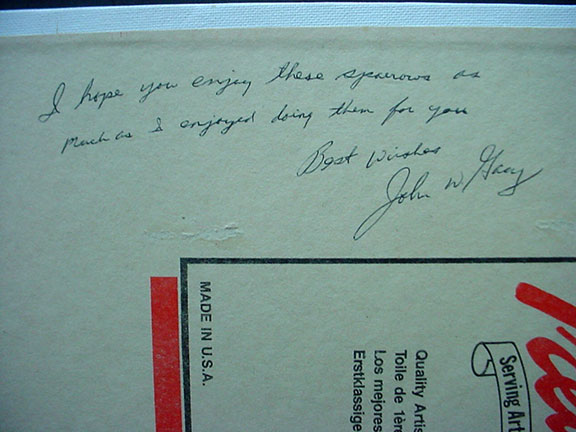 I hope you enjoy these sparrows as
much as I enjoyed doing them for you
Best wishes
John W.
MADE IN U.S.A.
Quality Artis
Toile de 1èr
Los mejores
Erstklassige
Serving Art